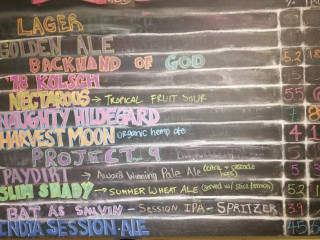 LAGER
GOLDEN ALE
BACKHAND OF GOD 5.2
'78 KOLSCH
NECTAROUS → TROPICAL FRUIT SOUR 5.5
NAUGHTY HILDEGARD
HARVEST MOON organic hemp ale 4
PROJECT 9
PAYDIRT → Award Winning Pale Ale (citra + cascade hops) 5
SLIM SHADY → SUMMER WHEAT ALE (served w/ slice lemon) 5.2
BAT AS SAUVIN - SESSION IPA - SPRITZER 3.9
INDIA SESSION ALE 4.5